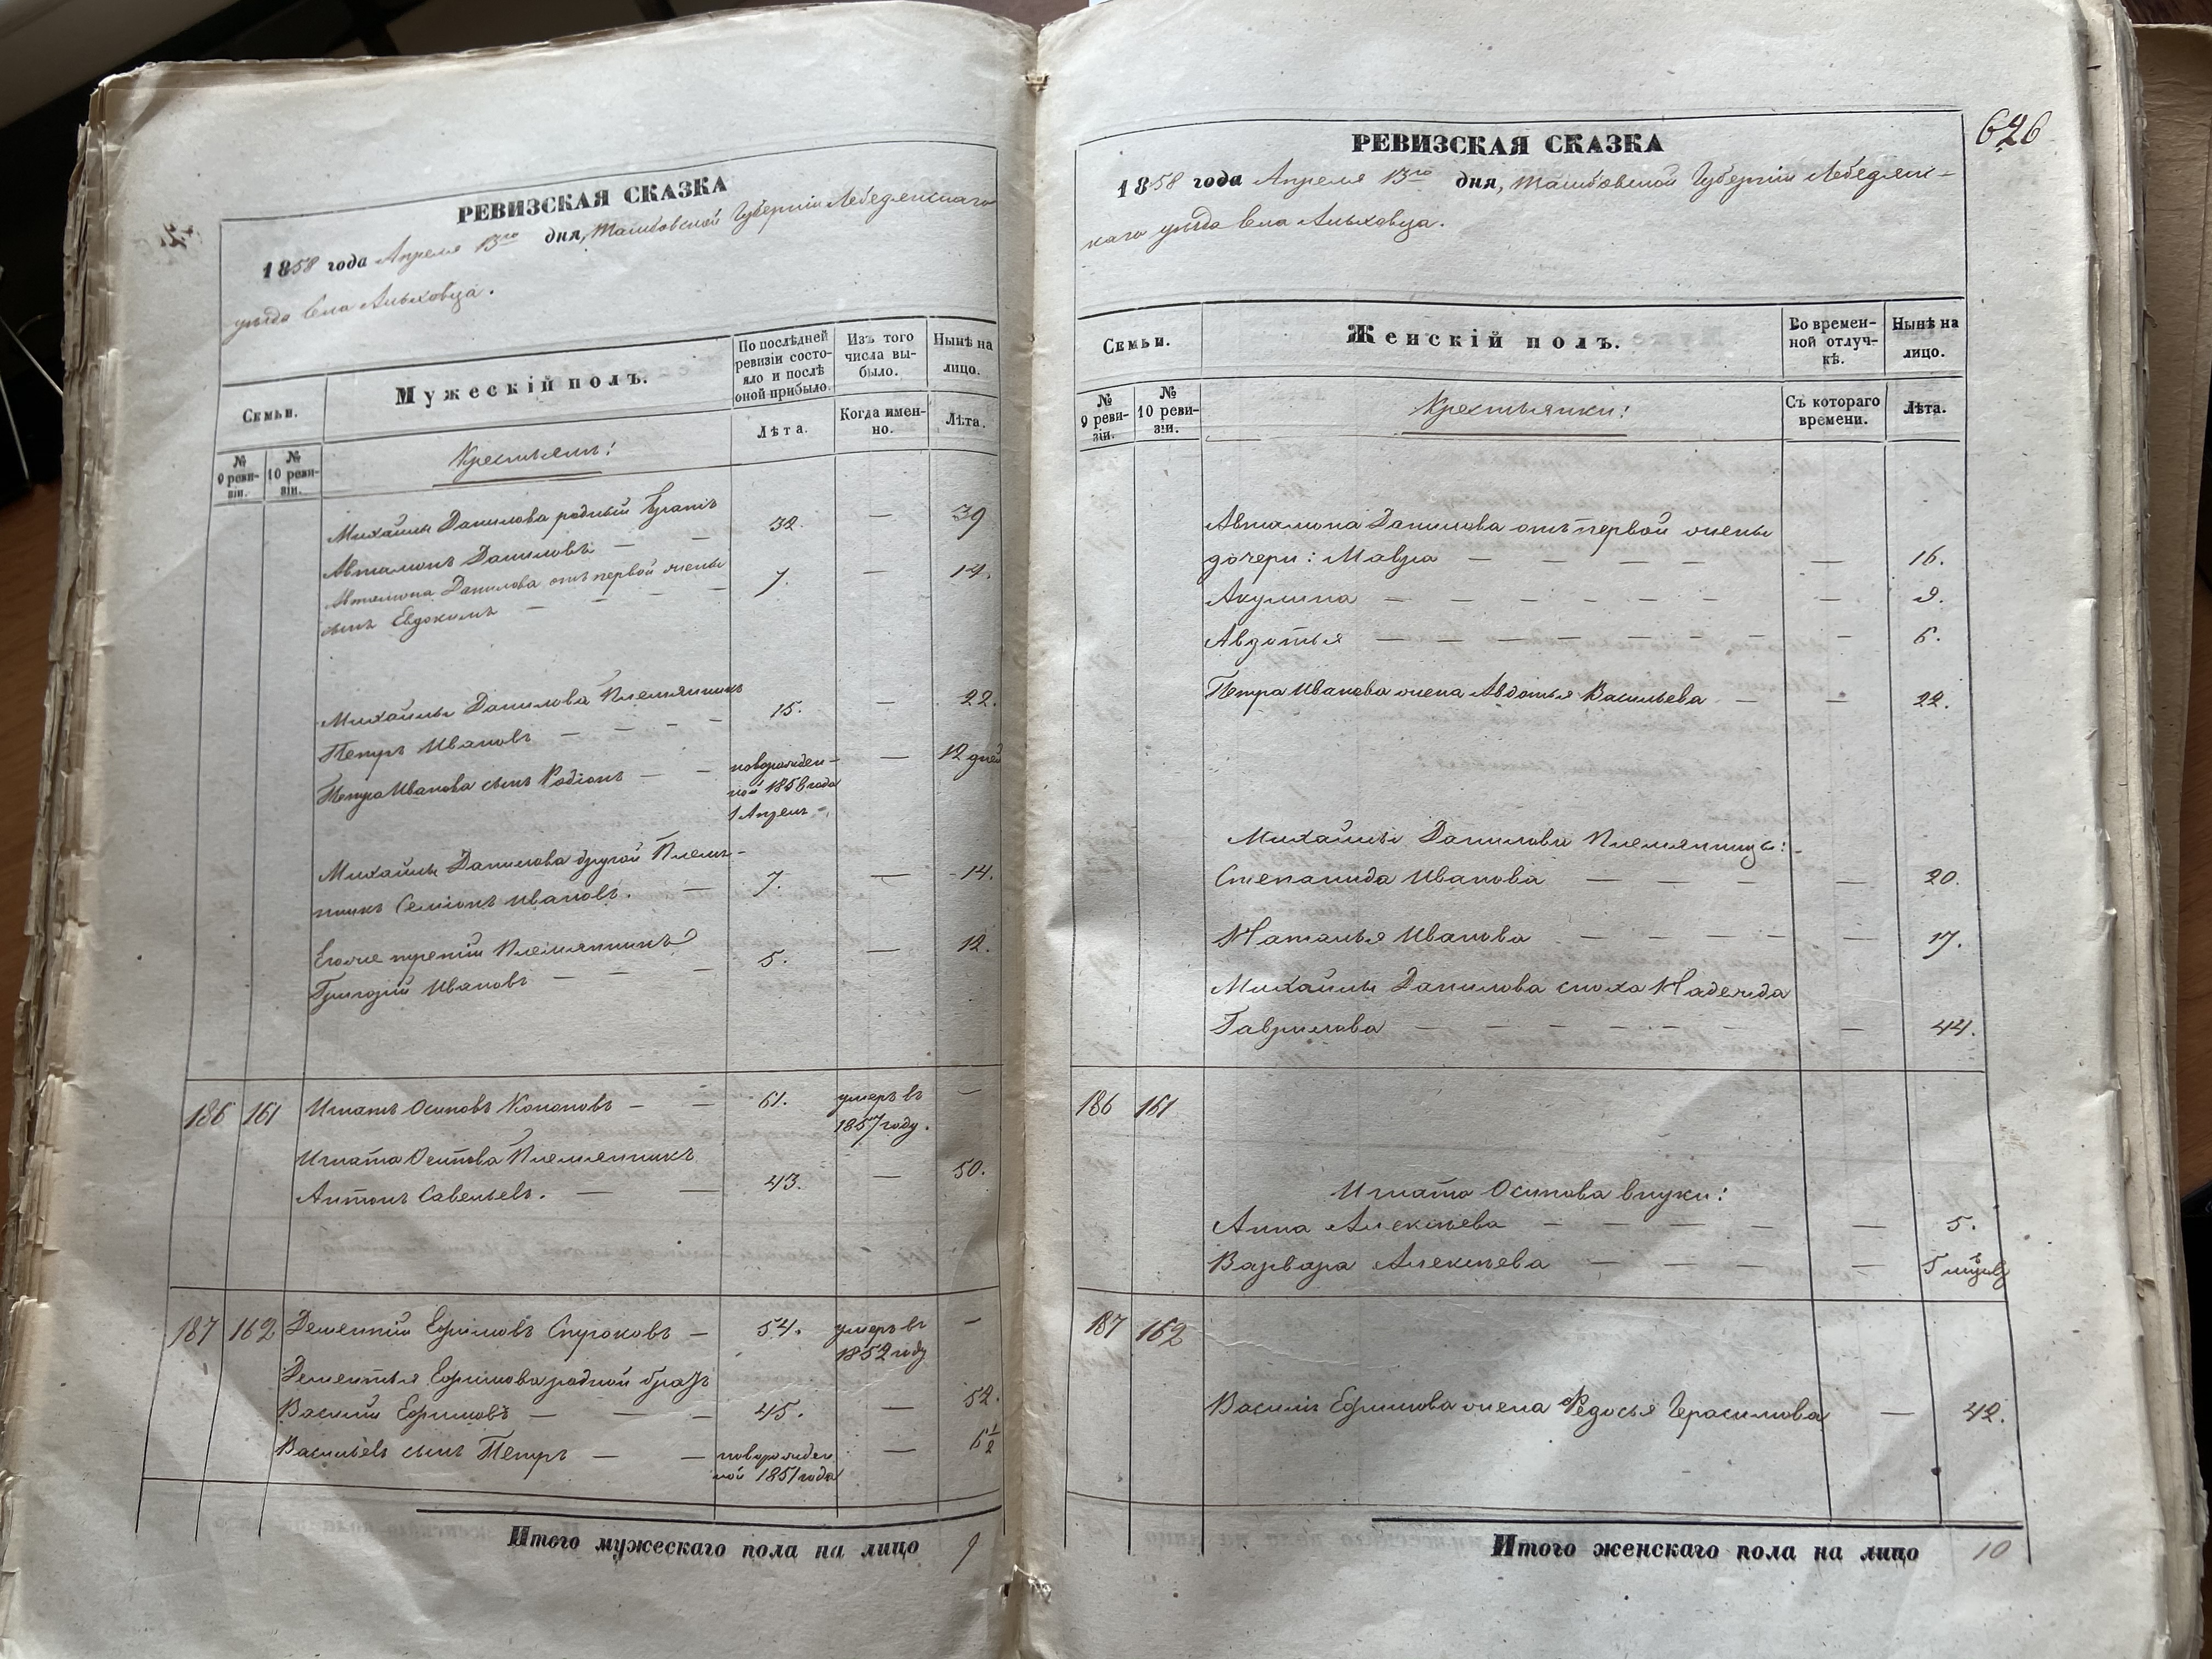 РЕВИЗСКАЯ СКАЗКА
1858 года Апреля 13го дня, Тамбовской Губернiи Лебедянскаго
уѣзда села Ольховца.
Семьи.
Мужескiй полъ.
По послѣдней ревизiи состо-
яло и послѣ оной прибыло.
Изъ того числа вы-
было.
Нынѣ на лицо.
№ 9 реви-
зiи.
№ 10 реви-
зiи.
Крестьянъ:
Лѣта.
Когда имен-
но.
Лѣта.
Михайлы Данилова родный братъ
Автамонъ Даниловъ — — 32. — 39
Автамона Данилова отъ первой жены
сынъ Евдокимъ — — — — 7. — 14.
Михайлы Данилова племянникъ
Петръ Ивановъ — — — 15. — 22.
Петра Иванова сынъ Родiонъ — — новорожден-
ной 1858 года
1 Апреля — 12 дней
Михайлы Данилова другой племян-
никъ Семiонъ Ивановъ. — 7. — 14.
Егоже третiй племянникъ
Григорiй Ивановъ — — — 5. — 12.
186 161 Игнатъ Осиповъ Кононовъ — — 61. умеръ въ
1857 году. —
Игната Осипова племянникъ
Антонъ Савельевъ. — — 43. — 50.
187 162 Дементiй Ефимовъ Струковъ — 54. умеръ въ
1852 году —
Дементья Ефимова родной братъ
Василiй Ефимовъ — — — 45. — 52.
Васильевъ сынъ Петръ — — новорожден
ной 1851 года — 6 1/2
Итого мужескаго пола на лицо 9
626
РЕВИЗСКАЯ СКАЗКА
1858 года Апреля 13го дня, Тамбовской Губернiи Лебедянс-
каго уѣзда села Ольховца.
Семьи.
Женскiй полъ.
Во времен-
ной отлуч-
кѣ.
Нынѣ на лицо.
№ 9 реви-
зiи.
№ 10 реви-
зiи.
Крестьянки:
Съ котораго времени.
Лѣта.
Автамона Данилова отъ первой жены
дочери: Мавра — — — — — 16.
Акулина — — — — — — — 9.
Авдотья — — — — — — — — 6.
Петра Иванова жена Авдотья Васильева — — 22.
Михайлы Данилова племянницы:
Степанида Иванова — — — — — 20.
Наталья Иванова — — — — — 17.
Михайлы Данилова сноха Надежда
Гаврилова — — — — — — — 44.
186 161
Игната Осипова внуки:
Анна Алексѣева — — — — — 5.
Варвара Алексѣева — — — — —
187 162
Василiя Ефимова жена Федосья Герасимова — 42.
Итого женскаго пола на лицо 10